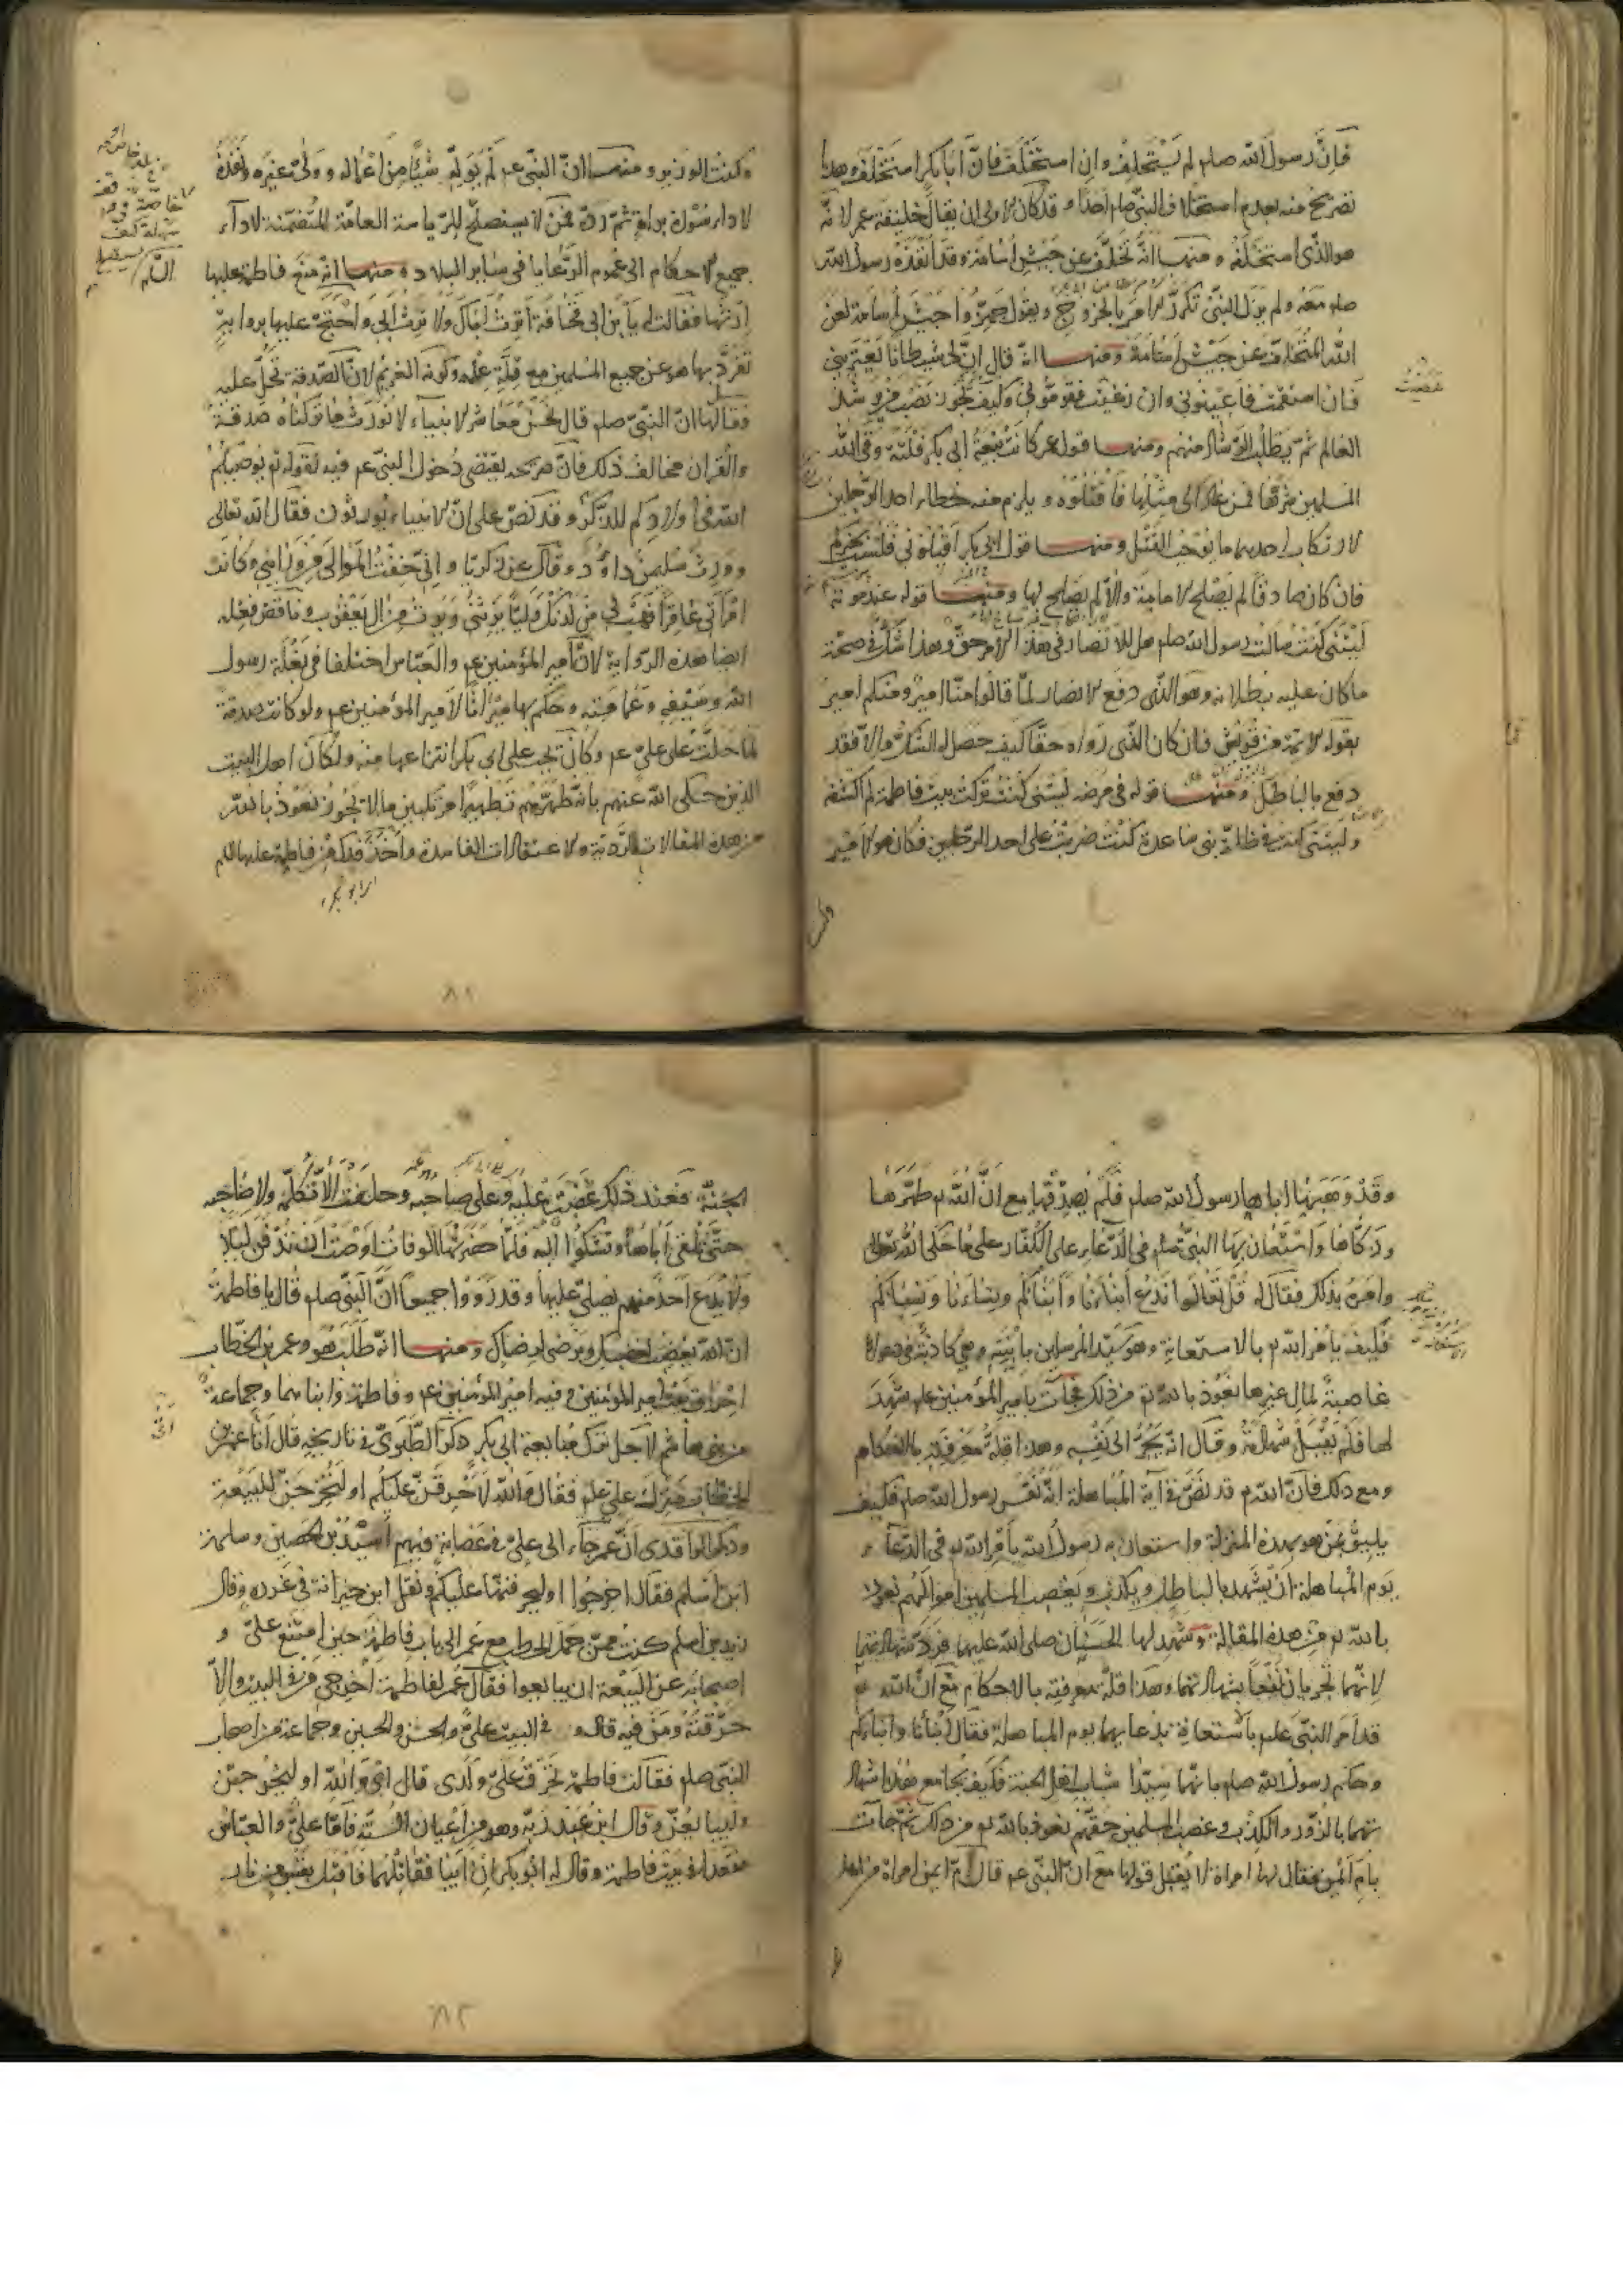 فانّ رسول الله صلم لم يستخلف وان استخلف فانّ ابا بكر استخلفه وهذا
تصريح منه بعدم استخلاف النبي صلم احدًا وقد كان الاولى ان يقال خليفة عمر لانّه
هو الذي استخلفه ومنها انّه تخلّف عن جيش اسامة وقد انفذه رسول الله
صلم معه ولم يزل النبي تكرّر الامر بالخروج ويقول جهّزوا جيش اسامة لعن
الله المتخلف عن جيش اسامة ومنها انّه قال انّ لي شيطانا يعتريني
فان استقمت فاعينوني وان زغت فقوّموني وكيف يجوز نصب من يرشد
العالم ثمّ يطلب الرشاد منهم ومنها قول عمر كانت بيعة ابي بكر فلتة وقى الله
المسلمين شرّها فمن عاد الى مثلها فاقتلوه ويلزم منه خطاء احد الرجلين
لارتكاب احدهما ما يوجب القتل ومنها قول ابي بكر اقيلوني فلست بخيركم
فان كان صادقا لم يصلح للامامة والّا لم يصلح لها ومنها قوله عند موته
ليتني كنت سالت رسول الله صلم هل للانصار في هذا الامر حق وهذا شكّ في صحّة
ما كان عليه وبطلانه وهو الذي دفع الانصار لمّا قالوا منّا امير ومنكم امير
بقوله الائمة من قريش فان كان الذي رواه حقّا كيف حصل له الشك والّا فقد
دفع بالباطل ومنها قوله في مرضه ليتني كنت تركت بيت فاطمة لم اكشفه
وليتني كنت في ظلة بني ساعدة كنت ضربت على احد الرجلين فكان هو الامير
وكنت الوزير ومنها انّ النبي عم لم يولّه شيئًا من اعماله وولّى غيره وانفذه
لاداء سورة براءة ثمّ ردّه فمن لا يستصلح للرياسة العامّة المتضمّنة لاداء
جميع الاحكام الى عموم الرعايا في ساير البلاد ومنها انّه منع فاطمة عليها
ارثها فقالت له يا ابن ابي قحافة اترث اباك ولا ارث ابي واحتجّ عليها برواية
تفرّد بها هو عن جميع المسلمين مع قلّة علمه وكونه الغريم لانّ الصدقة تحلّ عليه
فقال لها انّ النبيّ صلم قال نحن معاشر الانبياء لا نورث ما تركناه صدقة
والقران مخالف ذلك فانّ صريحه يقتضي دخول النبي عم فيه لقوله تع يوصيكم
الله في اولادكم للذكر وقد نصّ على انّ الانبياء يورثون فقال الله تعالى
وورث سليمن داود وقال عن زكريا وانّي خفت الموالي من ورائي وكانت
امراتي عاقرا فهب لي من لدنك وليّا يرثني ويرث من ال يعقوب وناقض فعله
ايضا هذه الرواية لانّ امير المؤمنين عم والعبّاس اختلفا في بغلة رسول
الله وسيفه وعمامته وحكم بها ميراثا لامير المؤمنين عم ولو كانت صدقة
لما حلّت على عليّ عم وكان يجب على ابي بكر انتزاعها منه ولكان اهل البيت
الذين حكى الله عنهم بانّه طهّرهم تطهيرا مرتكبين ما لا يجوز نعوذ بالله
من هذه المقالات الرديّة والاعتقادات الفاسدة واخذ فدك من فاطمة عليها السلم
وقد وهبها اياها رسول الله صلم فلم يصدّقها مع انّ الله تع طهّرها
وزكّاها واستعان بها النبي صلم في الدعاء على الكفّار على ما حكى الله تعالى
وامره بذلك فقال له قل تعالوا ندع ابناءنا وابناءكم ونساءنا ونساءكم
فكيف يامر الله تع بالاستعانة وهو سيّد المرسلين بابنته وهي كاذبة في دعواها
غاصبة لمال غيرها نعوذ بالله تع من ذلك فجاءت بامير المؤمنين علم شهد
لها فلم يقبل شهادته وقال انّه يجرّ الى نفسه وهذا قلة معرفته بالاحكام
ومع ذلك فانّ الله تع قد نصّ في آية المباهلة انّه نفس رسول الله صلم فكيف
يليق بمن هو بهذه المنزلة واستعان به رسول الله بامر الله تع في الدعاء
يوم المباهلة ان يشهد بالباطل ويكذب ويغصب المسلمين اموالهم نعوذ
بالله تع من هذه المقالة وشهد لها الحسنان صلى الله عليهما فردّ شهادتهما
لانّهما يجريان نفعًا بشهادتهما وهذا قلّة معرفته بالاحكام مع انّ الله تع
قد امر النبي علم بالاستعانة بدعايهما يوم المباهلة فقال ابناءنا وابناءكم
وحكم رسول الله صلم بانّهما سيّدا شباب اهل الجنة فكيف يجامع هذا شهاد
تهما بالزور والكذب وغصب المسلمين حقّهم نعوذ بالله تع من ذلك ثمّ جاءت
بامّ ايمن فقال لها امراة لا يقبل قولها مع انّ النبي عم قال امّ ايمن امراة من اهل
الجنّة فعند ذلك غضبت عليه وعلى صاحبه وحلفت الّا تكلّمه ولا صاحبه
حتّى تلقى اباها وتشكوا اليه فلمّا حضرتها الوفاة اوصت ان تدفن ليلًا
ولا يدع احد منهم يصلّي عليها وقد رووا جميعا انّ النبي صلم قال يا فاطمة
انّ الله يغضب لغضبك ويرضى لرضاك ومنها انّه طلب هو وعمر بن الخطاب
احراق بيت امير المؤمنين وفيه امير المؤمنين عم وفاطمة وابناهما وجماعة
من بني هاشم لاجل ترك مبايعة ابي بكر ذكر الطبري في تاريخه قال اتا عمر بن
الخطاب منزل علي علم فقال والله لاحرقنّ عليكم او لتخرجنّ للبيعة
وذكر الواقدي انّ عمر جاء الى عليّ في عصابة فيهم اسيد بن الحصين وسلمة
ابن اسلم فقال اخرجوا او لنحرقنّها عليكم ونقل ابن خيزرانة في غرره وقال
زيد بن اسلم كنت ممّن حمل الحطب مع عمر الى باب فاطمة حين امتنع عليّ و
اصحابه عن البيعة ان يبايعوا فقال عمر لفاطمة اخرجي من في البيت والّا
حرقته ومن فيه قال و في البيت عليّ والحسن والحسين وجماعة من اصحاب
النبي صلم فقالت فاطمة تحرق عليّ ولدي قال اي والله او ليخرجنّ
وليبايعنّ وقال ابن عبد ربّه وهو من اعيان السنّة فامّا عليّ والعبّاس
فقعدا في بيت فاطمة وقال له ابو بكر ان ابيا فقاتلهما فاقبل بقبس من نار
٨١
٨٢